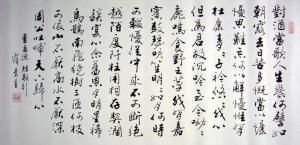 對酒當歌人生幾何譬如
朝露去日苦多慨當以慷
憂思難忘何以解憂惟有
杜康青々子衿悠々我心
但為君故沉吟至今呦々
鹿鳴食野之苹我有嘉
賓鼓瑟吹笙明明如月何時
可掇憂從中來不可斷絕
越陌度阡枉用相存契闊
談讌心念舊恩月明星稀
烏鵲南飛繞樹三匝何枝
可依山不厭高水不厭深
周公吐哺天下歸心
書曹操短歌行